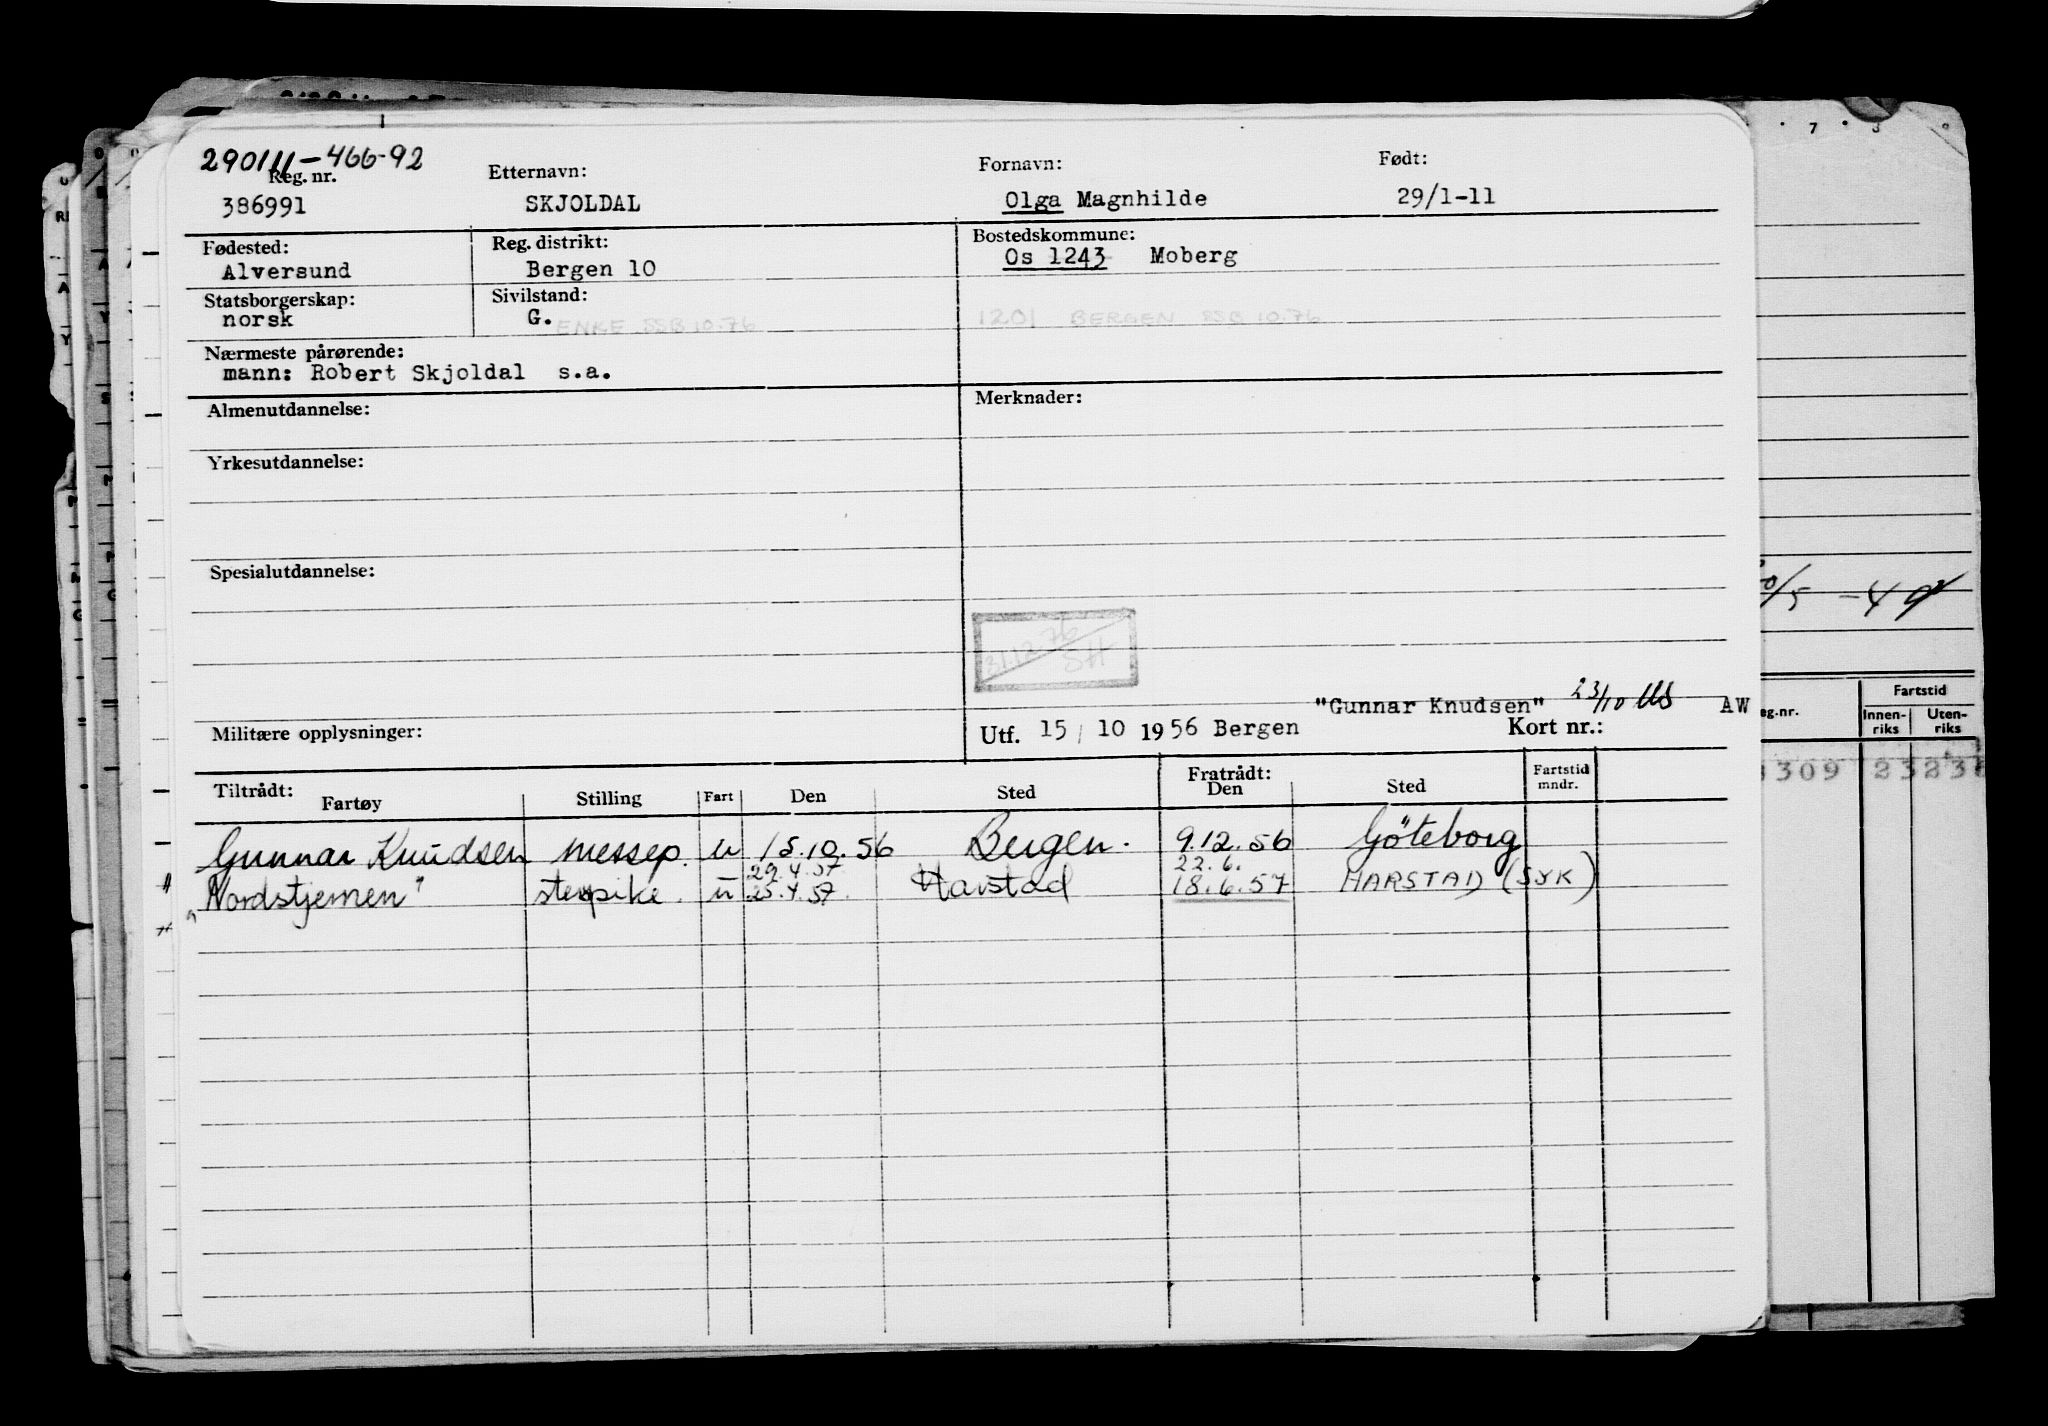 290111-466-92
Reg. nr. Etternavn: Fornavn: Født:
386991 SKJOLDAL Olga Magnhilde 29/1-11
Fødested: Reg. distrikt: Bostedskommune:
Alversund Bergen 10 Os 1243 Moberg
Statsborgerskap: Sivilstand:
norsk G. ENKE SSB 10.76 1201 BERGEN SSB 10.76
Nærmeste pårørende:
mann: Robert Skjoldal s.a.
Almenutdannelse: Merknader:
Yrkesutdannelse:
Spesialutdannelse:
31.12.76
SH
"Gunnar Knudsen" 23/10 AW
Militære opplysninger: Utf. 15/10 1956 Bergen Kort nr.:
Tiltrådt: Fratrådt:
Fartøy Stilling Fart Den Sted Den Sted Fartstid mndr.
Gunnar Knudsen messep. u 15.10.56 Bergen. 9.12.56 Göteborg
29.4.57 22.6.
"Nordstjernen" u 25.4.57. Harstad 18.6.57 HARSTAD (SYK)
7 8 9
20/5 -49
Fartstid
eg.nr. Innen-riks Uten-riks
309 23 23